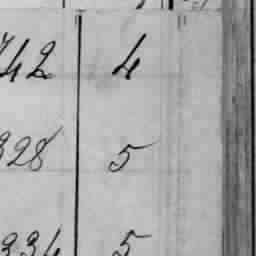 742 4
328 5
334 5